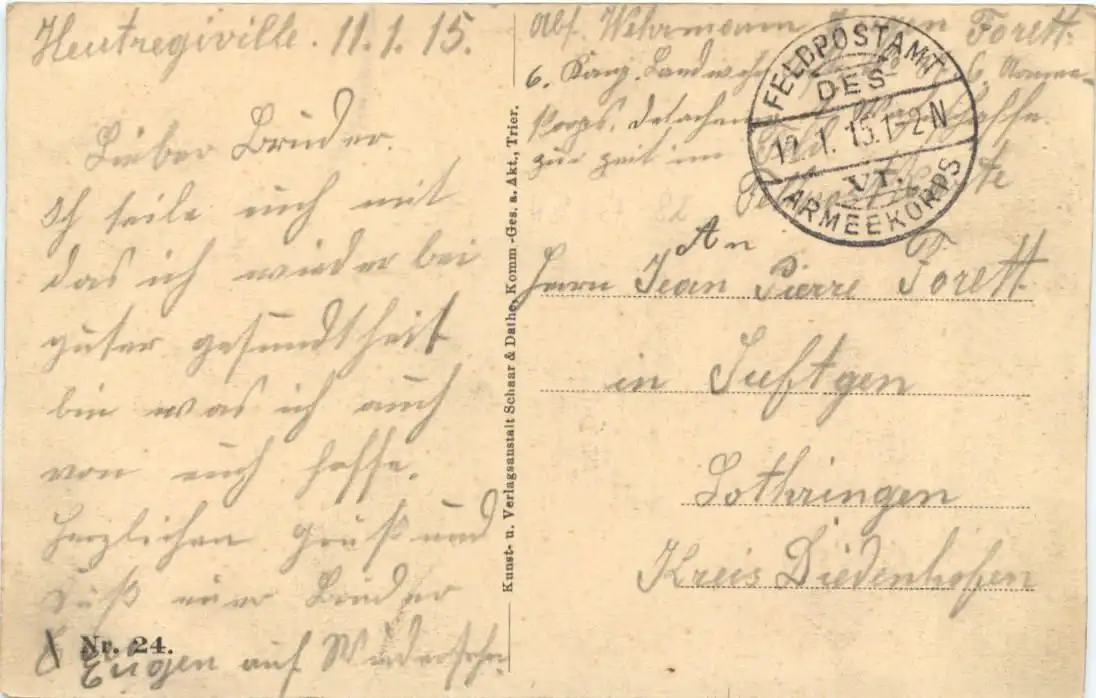 Heutregiville. 11.1.15.
Lieber Bruder.
Ich teile euch mit
das ich wieder bei
guter gesundtheit
bin was ich auch
von euch hoffe.
Herzlichen Gruß und
Kuß euer Bruder
Eugen auf Wiedersehn
Nr. 24.
Kunst- u. Verlagsanstalt Schaar & Dathe, Komm.-Ges. a. Akt., Trier.
Abs. Wehrmann Eugen Forett.
6. Komp. Landwehr 6. Armee-
Korps.
zur zeit im
FELDPOSTAMT
DES
12.1.15.1-2N
VI.
ARMEEKORPS
An
Herrn Jean Pierre Forett.
in Suftgen
Lothringen
Kreis Diedenhofen